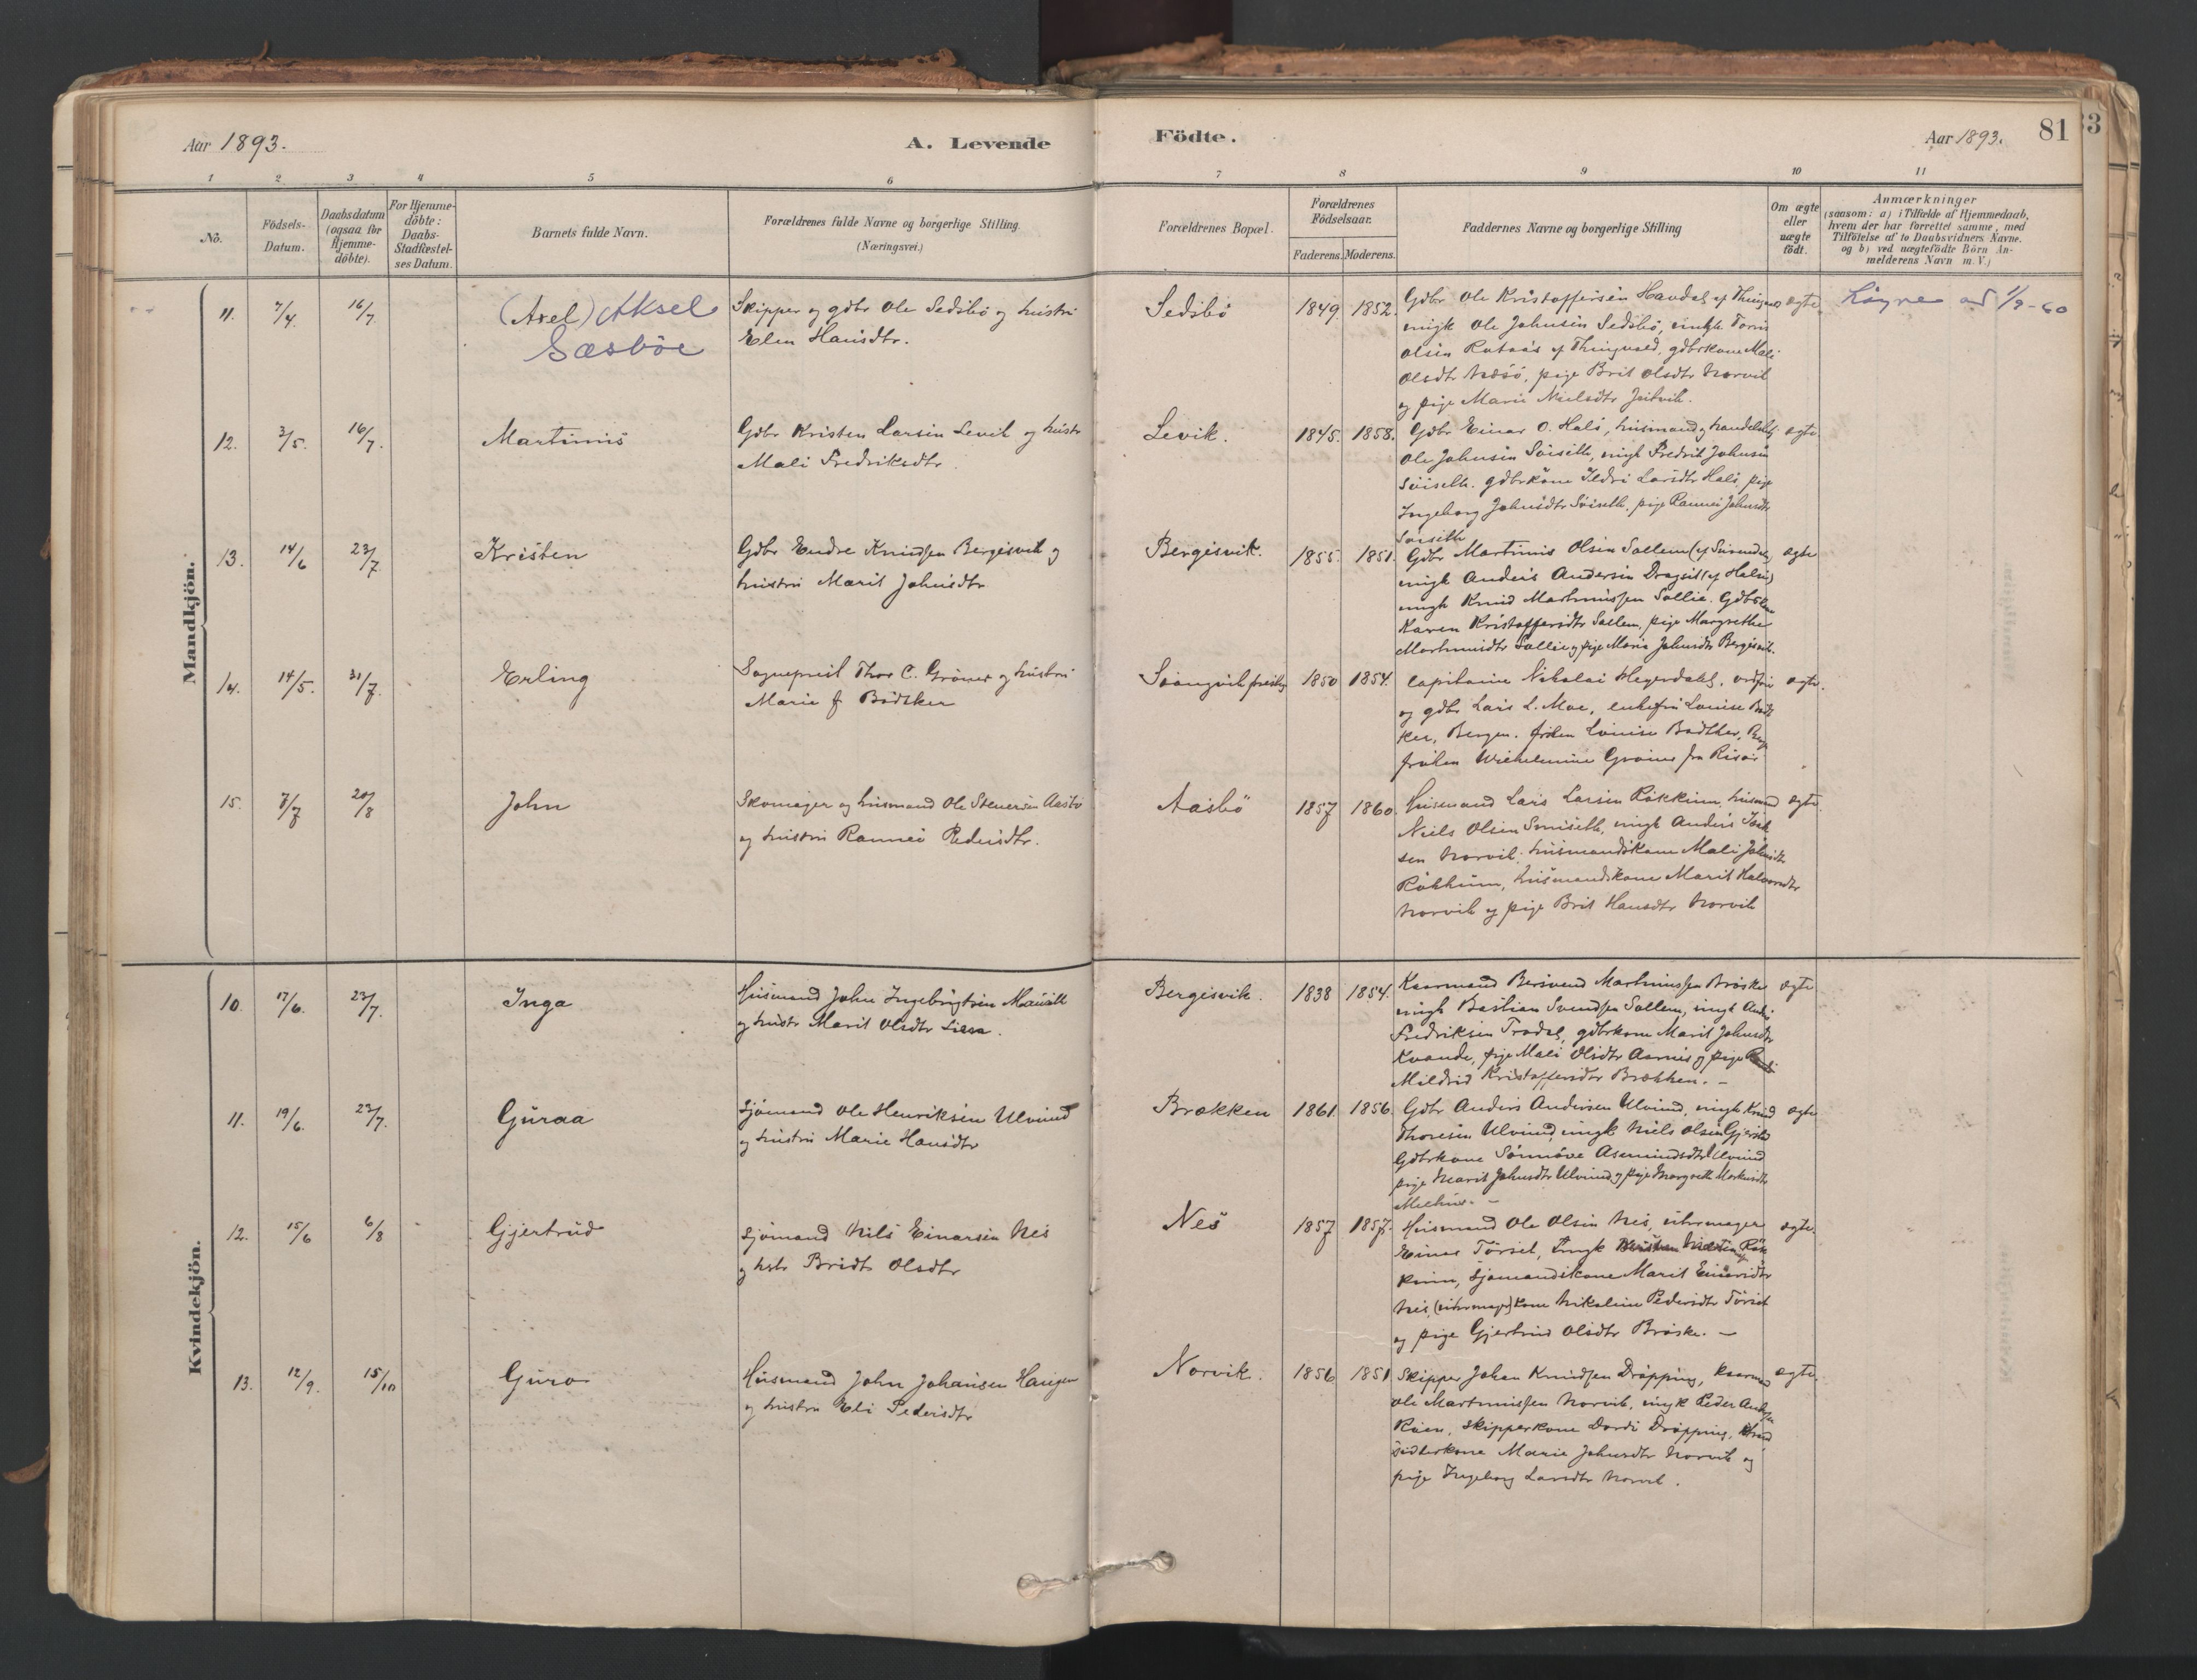 Aar 1893.
A. Levende
Födte.
Aar 1893.
81
33
1 2 3 4 5 6 7 8 9 10 11
No.
Födsels-
Datum.
Daabsdatum
(ogsaa for
Hjemme-
döbte).
For Hjemme-
döbte:
Daabs-
Stadfæstel-
ses Datum.
Barnets fulde Navn.
Forældrenes fulde Navne og borgerlige Stilling.
(Næringsvei.)
Forældrenes Bopæl.
Forældrenes
Födselsaar.
Faderens. Moderens.
Faddernes Navne og borgerlige Stilling
Om ægte
eller
uægte
födt.
Anmærkninger
(saasom: a) i Tilfælde af Hjemmedaab,
hvem der har forrettet samme, med
Tilföielse af to Daabsvidners Navne.
og b) ved uægtefödte Börn An-
melderens Navn m. V.)
Mandkjön.
11. 7/4. 16/7.
(Axel) Aksel
Sæsböe
Skipper og gdbr Ole Sedsbö og hustru
Elen Hansdtr.
Sedsbö
1849 1852.
Gdbr Ole Kristoffersen Havdal af Thingvold
ungk Ole Johnsen Sedsbö, ungk
Olsen af Thingvold, gdbrkone Mali
Olsdtr pige Brit Olsdtr Norvik
og pige Marie Nielsdtr
ægte
1/9-60
12. 3/5. 16/7.
Martinus
Gdbr Kristen Larsen Levik og hustr
Mali Fredriksdtr.
Levik.
1845. 1858.
Gdbr Einar O. Halö, husmand og
Ole Johnsen Söiseth, ungk Fredrik Johnsen
Söiseth. gdbrkone Ildri Larsdtr Halö, pige
Ingeborg Johnsdtr Söiseth, pige Rannei Johnsdtr
Söiseth
ægte
13. 14/6 23/7
Kristen
Gdbr Endre Knudsen Bergisvik og
hustru Marit Johnsdtr
Bergisvik.
1855. 1851.
Gdbr Martinus Olsen Sollem
ungk Anders Andersen
ungk Knud Martinussen Sollie. Gdbrkone
Karen Kristoffersdtr Sollem, pige Margrethe
Martinusdtr Sollie og pige Marie Johnsdtr Bergisvik.
ægte
14. 14/5. 31/7.
Erling
Sogneprest Thor C. Gröner og hustru
Marie f. Bödtker
1850 1854.
Capitaine Nikolai Hegerdahl,
og gdbr Lars L. Moe, enkefru Louise Bödt
ker, Bergen. fröken Louise Bödtker,
fröken Wilhelmine Gröner fra Risör
ægte.
15. 7/7 20/8
John
Skomager og husmand Ole Steversen Aasbö
og hustru Rannei Pedersdtr.
Aasbö
1857 1860.
Husmand Lars Larsen Rökkum, husmand
Niels Olsen ungk Anders
sen Norvik, husmandskone Mali Johnsdtr
Rökkum, husmandskone Marit Halvorsdtr
Norvik og pige Brit Hansdtr Norvik
ægte.
Kvindekjön.
10. 17/6. 23/7.
Inga
Husmand John Ingebrigtsen
og hustr Marit Olsdtr
Bergisvik.
1838 1854.
Kaarmand Bersvend Martinussen Bröske
ungk Bastian Svendsen Sollem, ungk Anders
Fredriksen Trodal, gdbrkone Marit Johnsdtr
Kvande, pige Mali Olsdtr Aarnes og pige
Mildrid Kristoffersdtr Brækken. –
ægte
11. 19/6. 23/7.
Guraa
Sjömand Ole Henriksen Ulvund
og hustru Marie Hansdtr
Brækken
1861. 1856.
Gdbr Anders Andersen Ulvund, ungk Knud
Thoresen Ulvund, ungk Niels Olsen
Gdbrkone Sönnöve Asmundsdtr Ulvund
pige Marit Johnsdtr Ulvund og pige Margreth
–
ægte
12. 15/6 6/8
Gjertrud
Sjömand Nils Einarsen Nes
og hstr Bridt Olsdtr
Nes
1857 1857.
Husmand Ole Olsen Nes, uhrmager
Einar Törset, Ungk Rök
kum, Sjömandskone Marit Einarsdtr
Nes, (uhrmager)kone Nikoline Pedersdtr Törset
og pige Gjertrud Olsdtr Bröske. –
ægte.
13. 12/9. 15/10
Guro
Husmand John Johansen Haugen
og hustru Eli Pedersdtr
Norvik.
1856 1851
Skipper Johan Knudsen Dröpping, kaarmand
Ole Martinussen Norvik, ungk Peder
Röen, skipperkone Dordi Dröpping,
Marie Johnsdtr Norvik og
pige Ingeborg Larsdtr Norvik.
ægte.